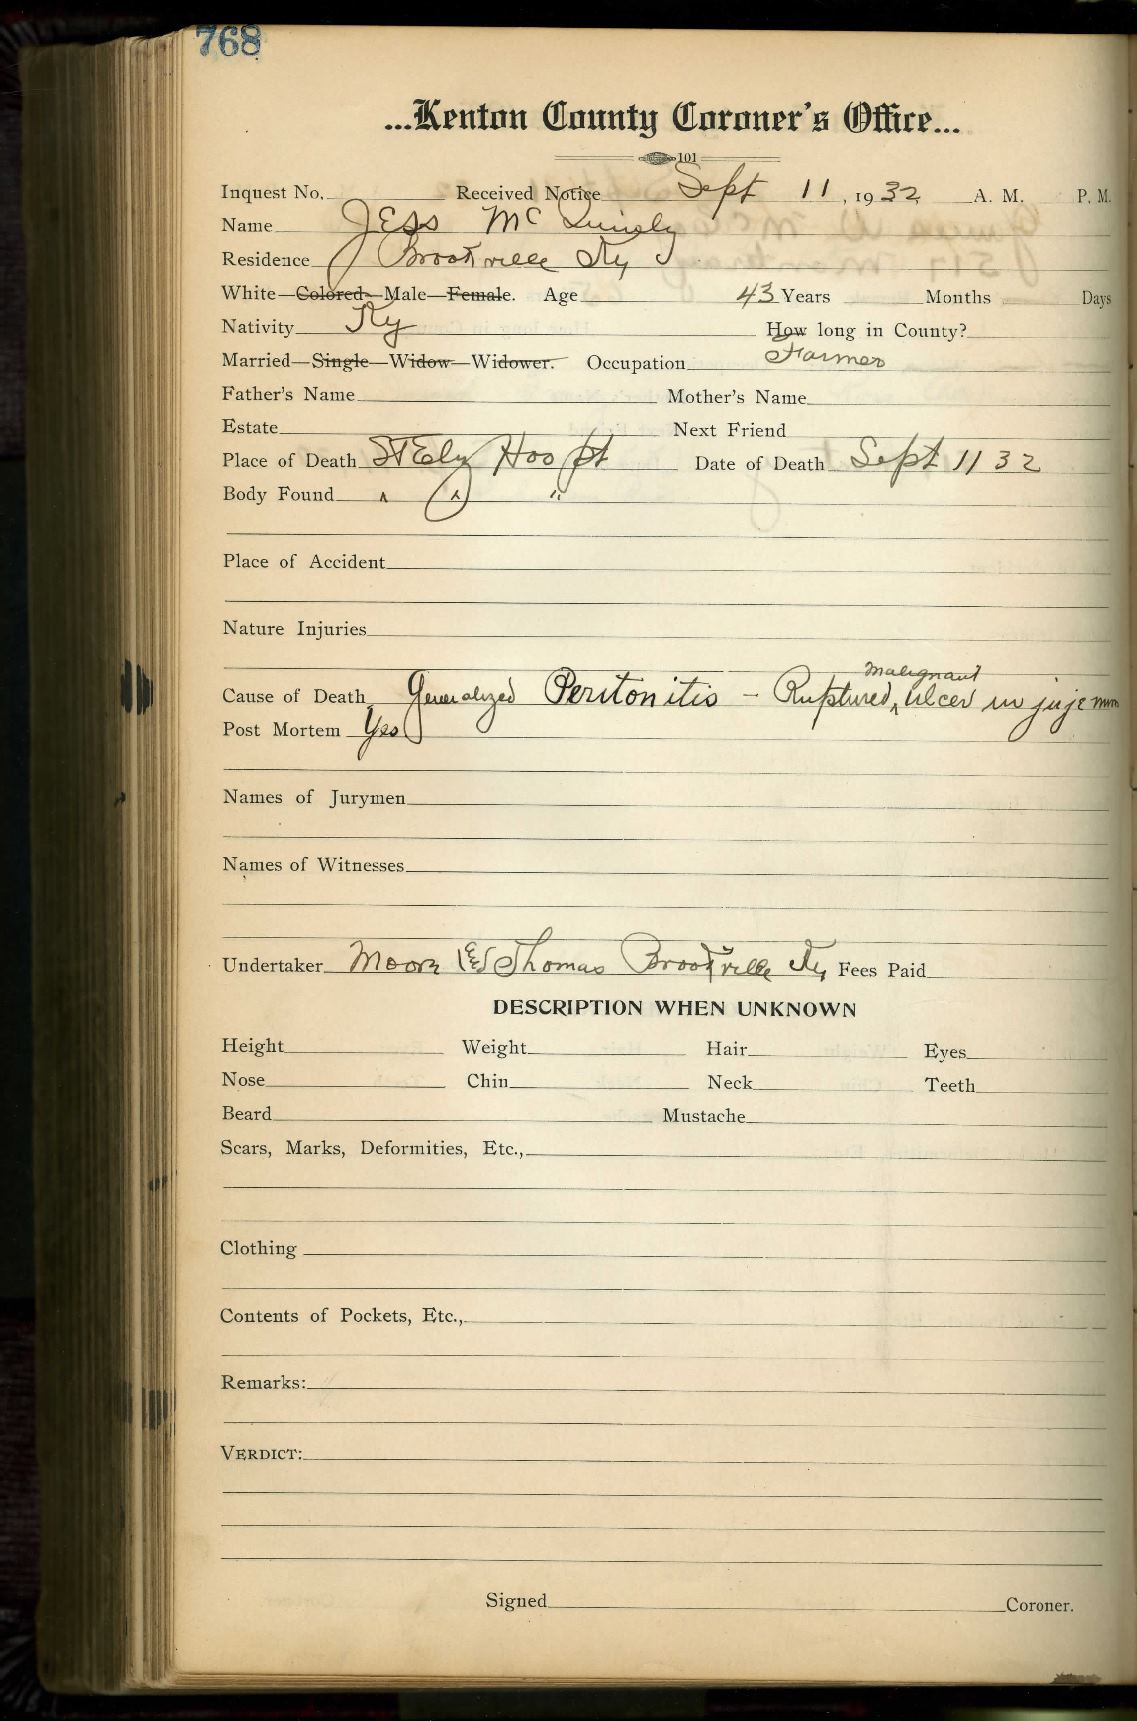 768
...Kenton County Coroner's Office...
101
Inquest No. Received Notice Sept 11, 1932 A. M. P. M.
Name Jess Mc
Residence Brooksville Ky
White—Colored—Male—Female. Age 43 Years Months Days
Nativity Ky How long in County?
Married—Single—Widow—Widower. Occupation Farmer
Father's Name Mother's Name
Estate Next Friend
Place of Death St Eliz Hospt Date of Death Sept 11 32
Body Found " " "
Place of Accident
Nature Injuries
malignant
Cause of Death Generalized Peritonitis – Ruptured ^ ulcer in jujenum
Post Mortem Yes
Names of Jurymen
Names of Witnesses
Undertaker Moore & Thomas Brooksville Ky Fees Paid
DESCRIPTION WHEN UNKNOWN
Height Weight Hair Eyes
Nose Chin Neck Teeth
Beard Mustache
Scars, Marks, Deformities, Etc.,
Clothing
Contents of Pockets, Etc.,
Remarks:
VERDICT:
Signed Coroner.